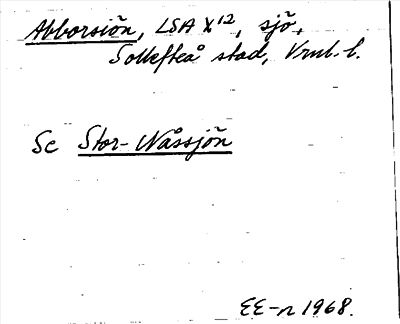 Abborsjön, LSA X¹², sjö,
Sollefteå stad, Vrml. l.
Se Stor-Nåssjön
EE-n 1968.